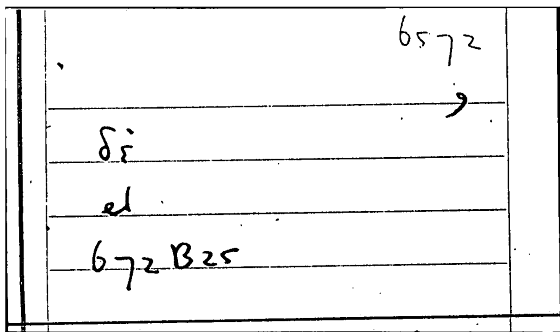 6572
,
δὲ
el
672B25